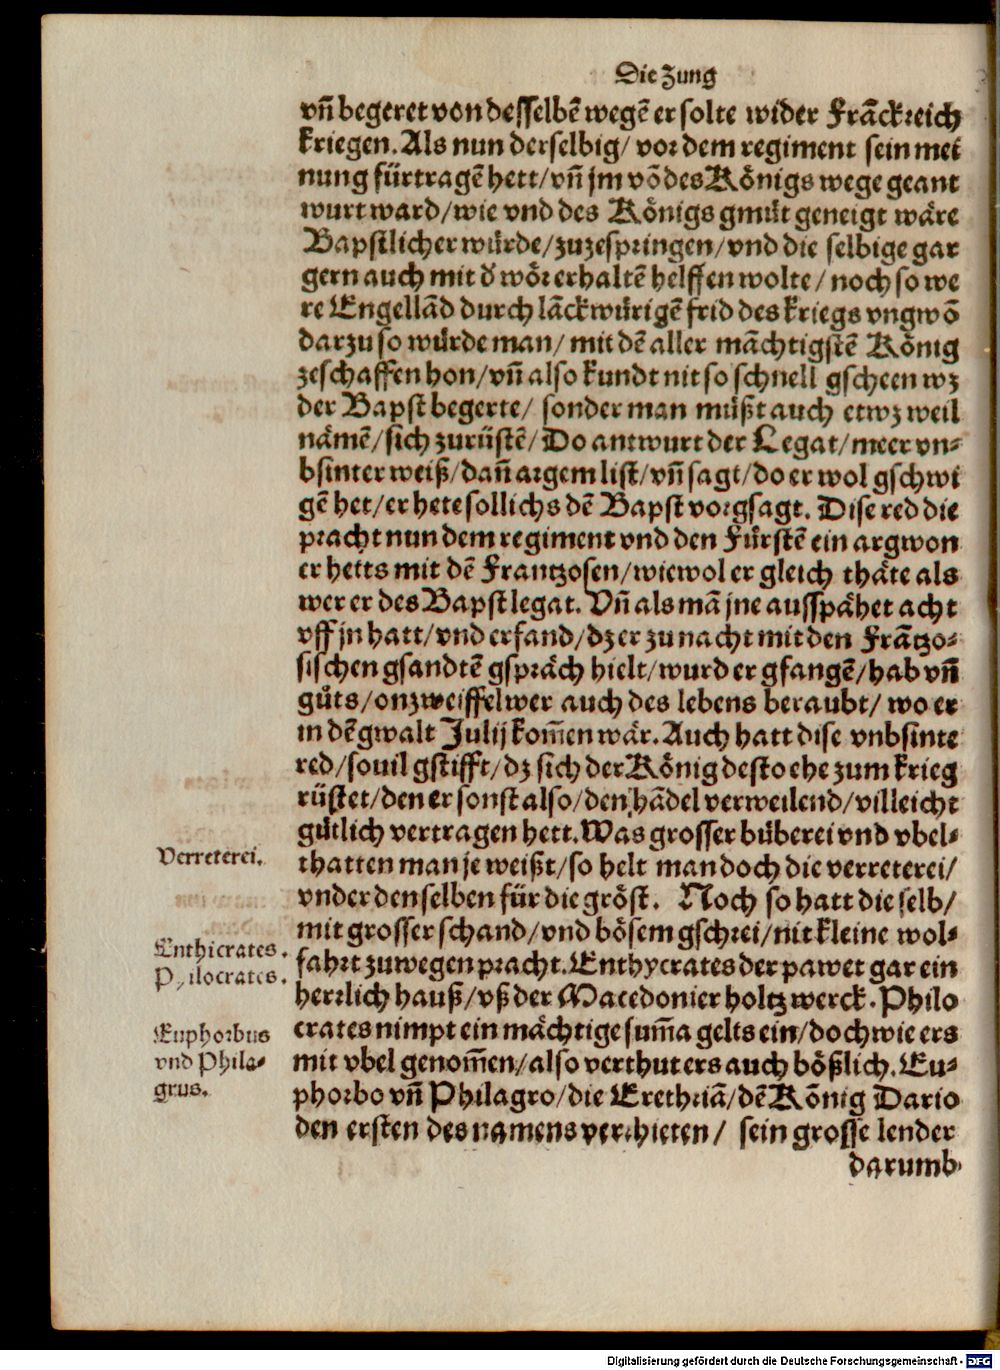 Die Zung
vñ begeret von desselbẽ wegẽ er solte wider Frãckreich
kriegen. Als nun derselbig/ vor dem regiment sein mei
nung fürtragẽ hett/ vñ jm võ des Königs wege geant
wurt ward/ wie vnd des Königs gmüt geneigt wäre
Bapstlicher würde/ zuzespringen/ vnd die selbige gar
gern auch mit d' wör erhaltẽ helffen wolte/ noch so we
re Engellãd durch lãckwürigẽ frid des kriegs vngwõ
darzu so würde man/ mit dẽ aller mächtigstẽ König
zeschaffen hon/ vñ also kundt nit so schnell gscheen wz
der Bapst begerte/ sonder man müßt auch etwz weil
nämẽ/ sich zurüstẽ/ Do antwurt der Legat/ meer vn-
bsinter weiß/ dañ argem list/ vñ sagt/ do er wol gschwi
gẽ het/ er hete sollichs dẽ Bapst vorgsagt. Dise red die
pracht nun dem regiment vnd den Fürstẽ ein argwon
er hetts mit dẽ Frantzosen/ wiewol er gleich thäte als
wer er des Bapst legat. Vñ als mã jne ausspähet acht
vff jn hatt/ vnd erfand/ dz er zu nacht mit den Frãtzo-
sischen gsandtẽ gspräch hielt/ wurd er gfangẽ/ hab vñ
güts/ on zweiffel wer auch des lebens beraubt/ wo er
in dẽ gwalt Julij kom̃en wär. Auch hatt dise vnbsinte
red/ souil gstifft/ dz sich der König desto ehe zum krieg
rüstet/ den er sonst also/ den hãdel verweilend/ villeicht
gütlich vertragen hett. Was grosser büberei vnd vbel-
thatten man je weißt/ so helt man doch die verreterei/
vnder denselben für die gröst. Noch so hatt die selb/
mit grosser schand/ vnd bösem gschrei/ nit kleine wol-
fahrt zuwegen pracht. Enthycrates der pawet gar ein
herrlich hauß/ vß der Macedonier holtz werck. Philo
crates nimpt ein mächtige sum̃a gelts ein/ doch wie ers
mit vbel genom̃en/ also verthut ers auch bößlich. Eu-
phorbo vñ Philagro/ die Erethriã/ dẽ König Dario
den ersten des namens verrhieten/ sein grosse lender
darumb
Verreterei.
Enthicrates.
Philocrates.
Euphorbus
vnd Phila-
grus.
Digitalisierung gefördert durch die Deutsche Forschungsgemeinschaft - DFG